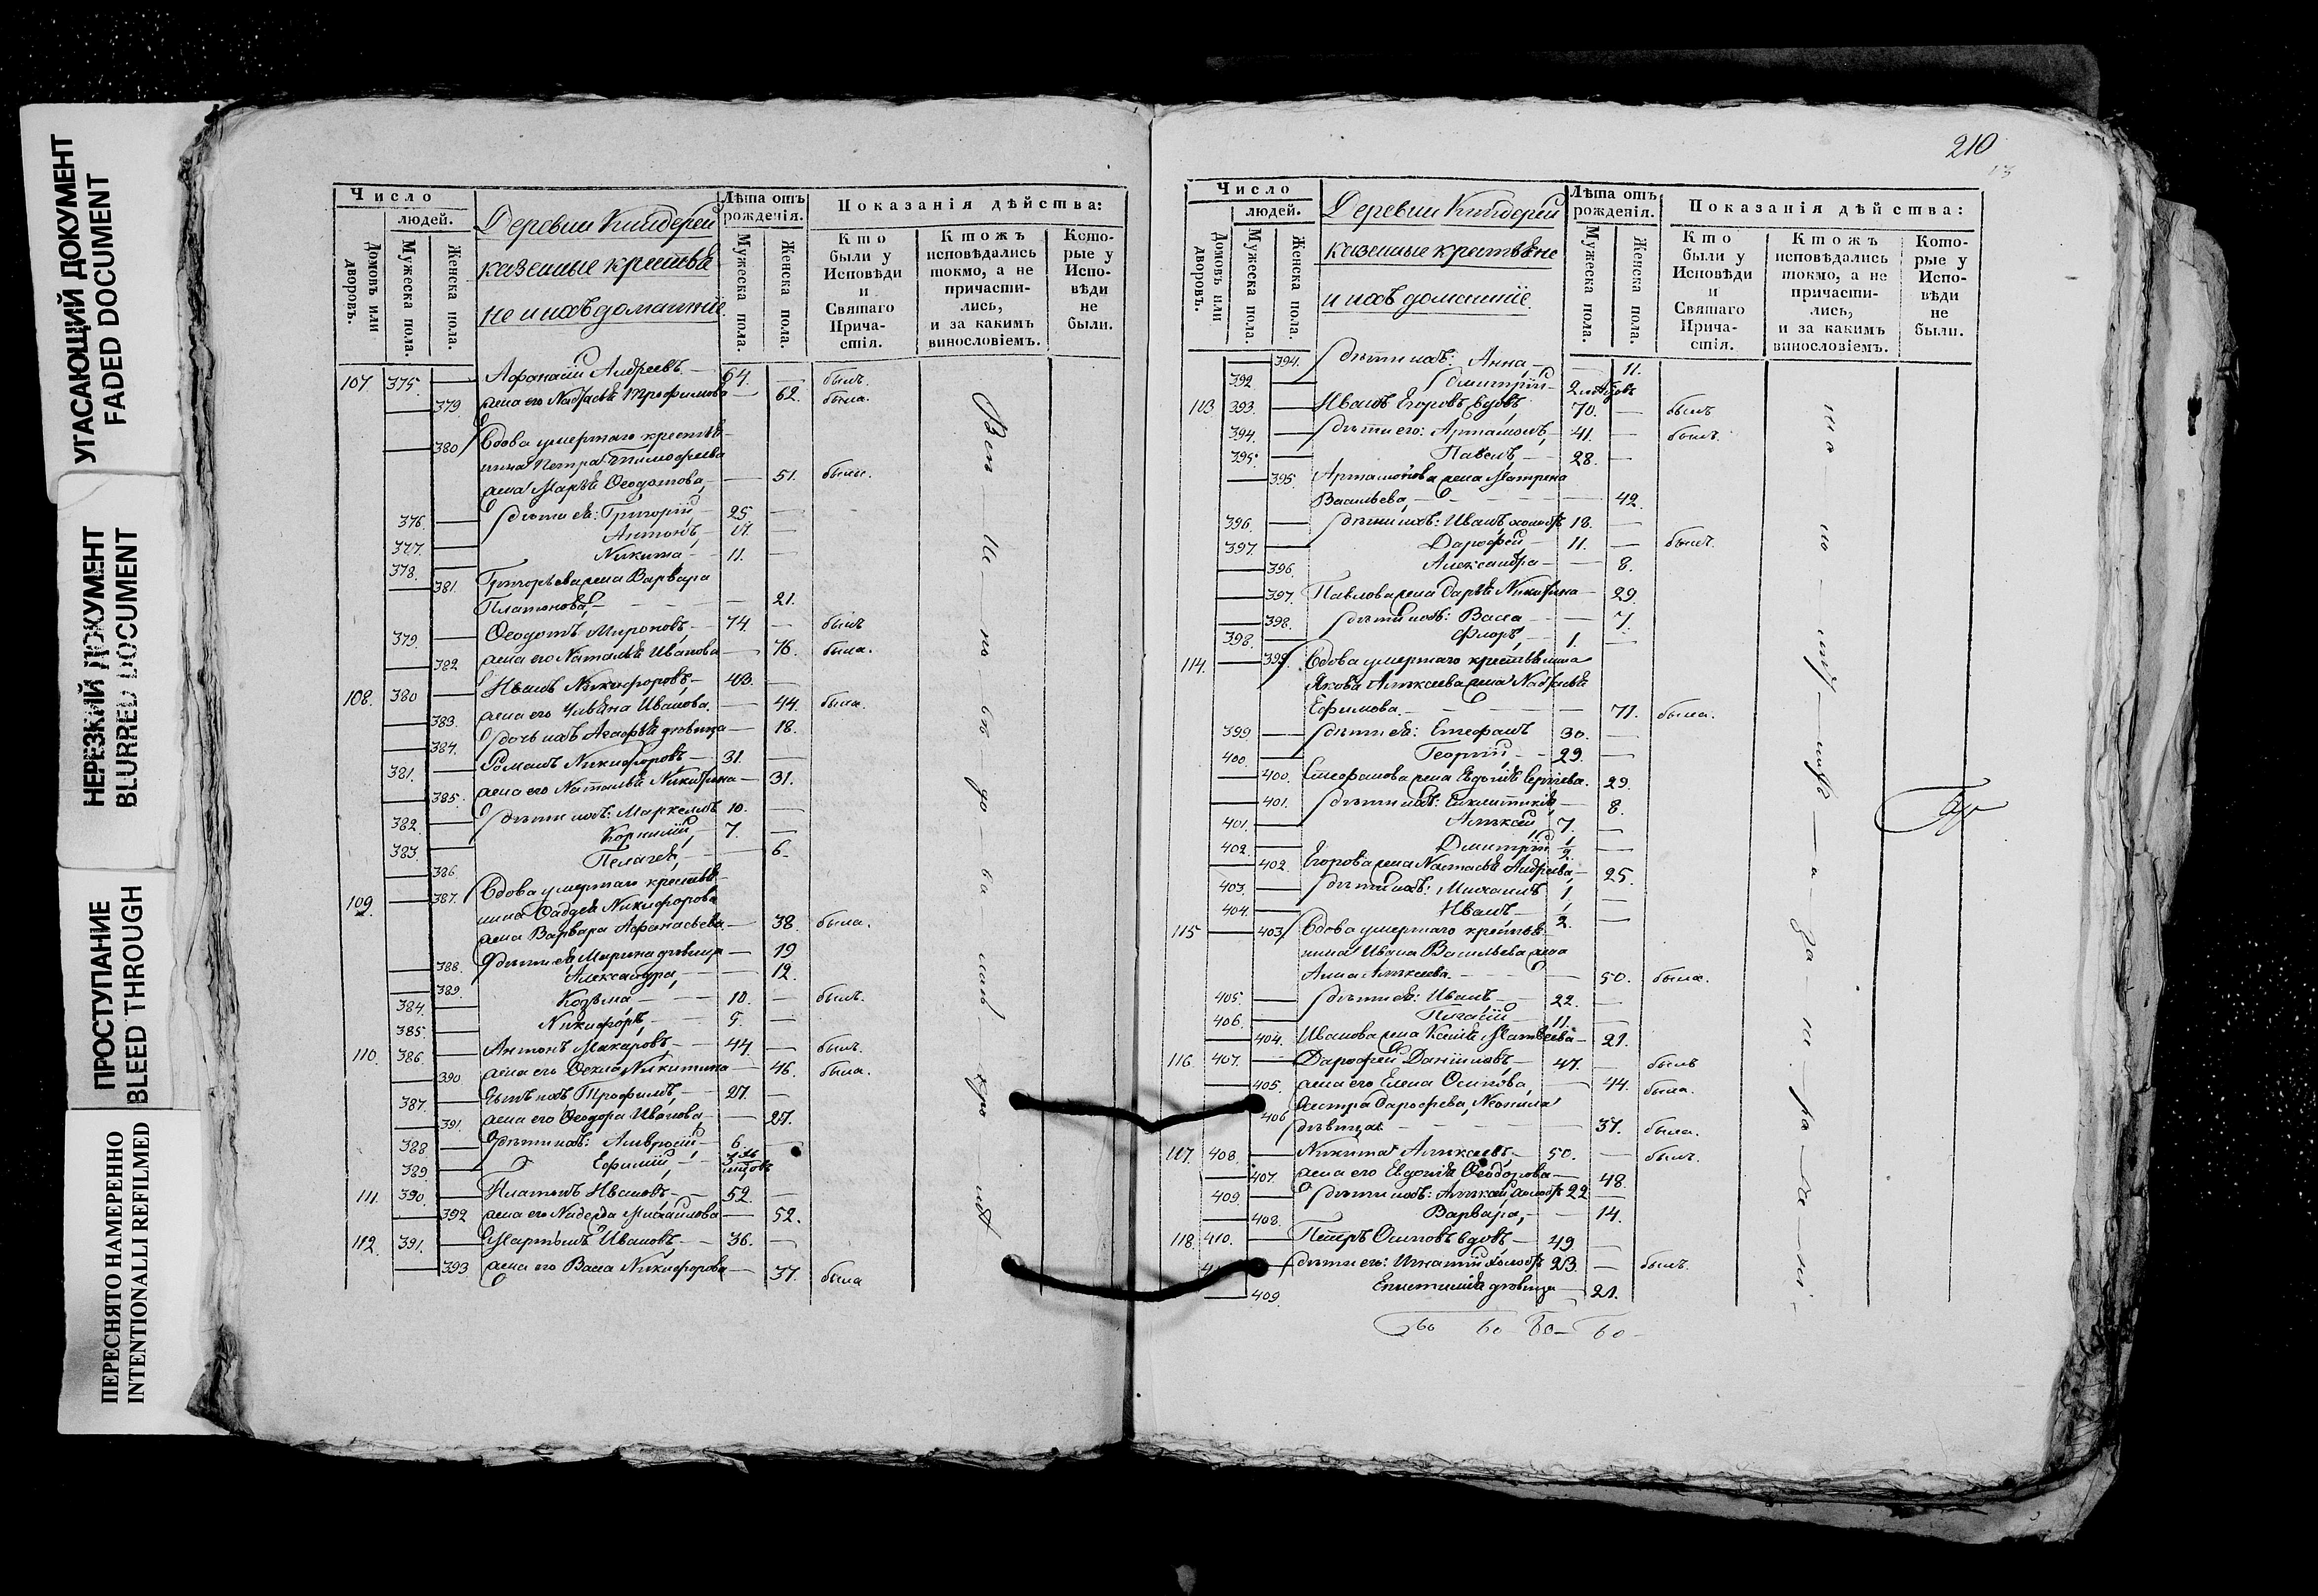 УГАСАЮЩИЙ ДОКУМЕНТ
FADED DOCUMENT
НЕРЕЗКИЙ ДОКУМЕНТ
BLURRED DOCUMENT
ПРОСТУПАНИЕ
BLEED THROUGH
ПЕРЕСНЯТО НАМЕРЕННО
INTENTIONALLI REFILMED
Число
людей.
Домовъ или дворовъ.
Мужеска пола.
Женска пола.
Деревни Киндерей
казенные крестья
не и ихъ домашніе
Лѣта отъ рожденія.
Мужеска пола.
Женска пола.
Показанія дѣйства:
Кто были у Исповѣди и Святаго Прича-стія.
Ктожъ исповѣдались токмо, а не причасти-лись, и за какимъ винословіемъ.
Кото-рые у Испо-вѣди не были.
107 375 Афанасій Андреевъ 64. былъ.
379 жена его Настасья Трофимова 62. была.
380 Вдова умершаго крестья-
нина Петра Тимофеева
жена Марья Ѳеодотова, 51. была.
376 дѣти ея: Григорій 25
377. Антонъ,
378. Никита 11.
381. Григорьева жена Варвара
Платонова, 21.
379. Ѳеодотъ Мироновъ, 74. былъ
382 жена его Наталья Иванова 76. была.
108. 380 Иванъ Никифоровъ, 43.
383. жена его Ульяна Иванова. 44. была.
384. дочь ихъ Агафья дѣвица 18.
381. Романъ Никифоровъ 31.
385. жена его Наталья Никитина 31.
382. дѣти ихъ: Маркелъ 10.
383. Корнилій, 7.
386. Пелагея, 6.
109. 387. Вдова умершаго крестья-
нина Фаддея Никифорова
жена Варвара Афанасьева 38 была.
388. дѣти ея Марина дѣвица 19
389. Александра, 12.
384. Козьма 10. былъ.
385. Никифоръ,
110. 386 Антонъ Макаровъ 44. былъ.
390 жена его Ѳекла Никитина 46. была.
387. Сынъ ихъ Трофимъ, 27.
391. жена его Ѳеодора Иванова 27.
388 дѣти ихъ: Амвросій 6.
389. Ефимій,
111. 390. Платонъ Ивановъ 52.
392 жена его Михайлова 52.
112. 391. Мартынъ Ивановъ, 36.
393 жена его Васса Никифорова 37. была
210
Число
людей.
Домовъ или дворовъ.
Мужеска пола.
Женска пола.
Деревни Киндерей
казенные крестьяне
и ихъ домашніе
Лѣта отъ рожденія.
Мужеска пола.
Женска пола.
Показанія дѣйства:
Кто были у Исповѣди и Святаго Прича-стія.
Ктожъ исповѣдались токмо, а не причасти-лись, и за какимъ винословіемъ.
Кото-рые у Испо-вѣди не были.
394. дѣти ихъ: Анна 11.
392 Димитрій
113 393. Иванъ Егоровъ вдовъ 70. былъ
394. дѣти его: Артамонъ, 41. былъ.
395. Павелъ, 28.
395. Артамонова жена Матрена
Васильева, 42.
396. дѣти ихъ: Иванъ холостъ 18.
397. Дарофей 11. былъ.
396. Александра 8.
397. Павлова жена Дарья Никитина 29.
398. дѣти ихъ: Васса 7.
398. Флоръ, 1.
114. 399. Вдова умершаго крестьянина
Якова Алексеева жена Настасья
Ефимова. 71. была.
399 дѣти ея: Стефанъ 30.
400. Георгій, 29.
400. Стефанова жена Евдокія Сергеева. 29.
401. дѣти ихъ: 8.
401. Алексей 7.
402. Димитрій 1/2
402. Егорова жена Настасья Андреева, 25.
403. дѣти ихъ: Михаилъ 1
404. Иванъ 1/2.
115 403 Вдова умершаго крестья-
нина Ивана Васильева жена
Анна Алексеева. 50. была.
405. дѣти ея: Иванъ 22.
406. 11.
404. Иванова жена Ксенія Матвеева 21.
116. 407. Дарофей Даниловъ 47. былъ
405. жена его Елена Осипова, 44. была.
406 Сестра Дарофеева, Неонила
дѣвица 37. была.
117. 408. Никита Алексеевъ 50. былъ.
407. жена его Евдокія Ѳеодорова 48.
409. дѣти ихъ: Алексей холостъ 22
408. Варвара, 14.
118. 410. Петръ Осиповъ вдовъ 49.
дѣти его: Игнатій холостъ 23. былъ.
409. дѣвица 21.